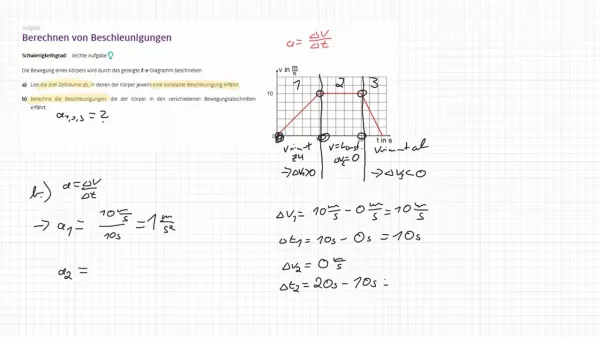 Aufgabe
Berechnen von Beschleunigungen
Schwierigkeitsgrad: leichte Aufgabe
Die Bewegung eines Körpers wird durch das gezeigte t-v-Diagramm beschrieben.
a) Lies die drei Zeiträume ab, in denen der Körper jeweils eine konstante Beschleunigung erfährt.
b) Berechne die Beschleunigungen, die der Körper in den verschiedenen Bewegungsabschnitten
erfährt.
a1,2,3 = ?
a = Δv/Δt
v in m/s
1 2 3
10
0
t in s
v nimmt zu
→ Δv>0
v = konst.
Δv = 0
v nimmt ab
→ Δv < 0
b.) a = Δv/Δt
→ a1 = 10 m/s / 10s = 1 m/s²
a2 =
Δv1 = 10 m/s − 0 m/s = 10 m/s
Δt1 = 10s − 0s = 10s
Δv2 = 0 m/s
Δt2 = 20s − 10s =